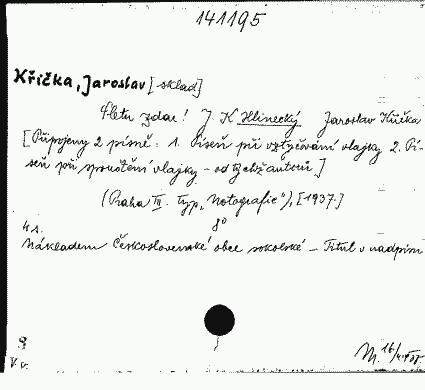 141195
Křička, Jaroslav [sklad]
Sletu zdar! J. K. Hlinecký Jaroslav Křička
[Připojeny 2 písně: 1. Píseň při vztyčování vlajky 2. Pí-
seň při spouštění vlajky - od týchž autorů.]
(Praha III. typ. "Notografie"), [1937.]
8°
4 s.
Nákladem Československé obce sokolské - Titul v nadpisu